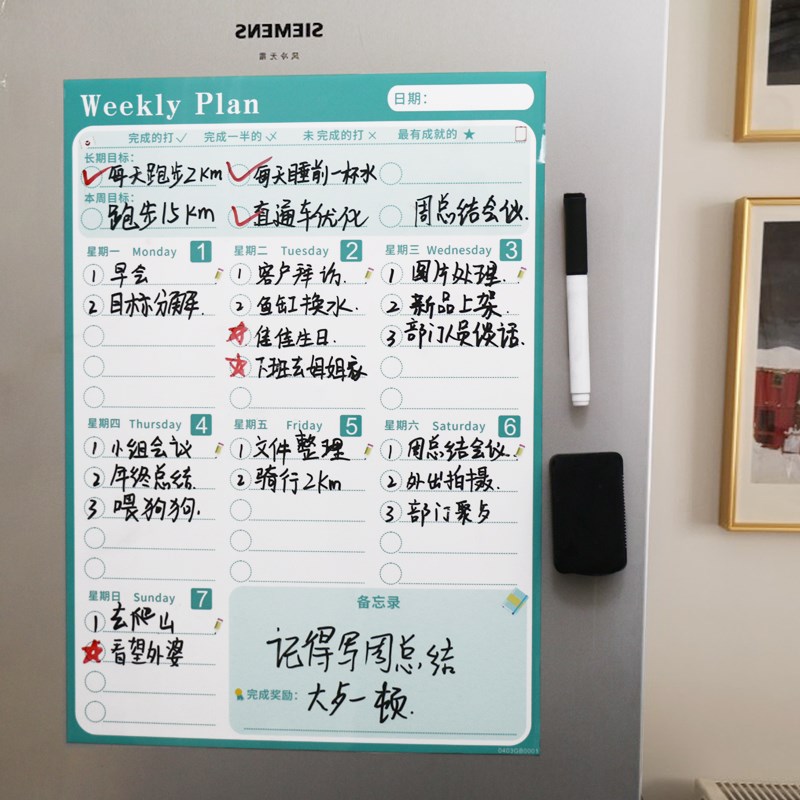 SIEMENS
风冷无霜
Weekly Plan
日期：
完成的打✓ 完成一半的 未完成的打× 最有成就的★
长期目标：
每天跑步2Km 每天睡前一杯水
本周目标：
跑步15Km 直通车优化 周总结会议.
星期一 Monday 1
1 早会
2 目标分解.
星期二 Tuesday 2
1 客户拜访.
2 鱼缸换水.
佳佳生日.
下班去姐姐家
星期三 Wednesday 3
1 图片处理.
2 新品上架.
3 部门人员谈话.
星期四 Thursday 4
1 小组会议
2 年终总结.
3 喂狗狗.
星期五 Friday 5
1 文件整理
2 骑行2Km
星期六 Saturday 6
1 周总结会议.
2 外出拍摄.
3 部门聚歺
星期日 Sunday 7
1 去爬山
看望外婆
备忘录
记得写周总结
完成奖励：大歺一顿.
0403GB0001